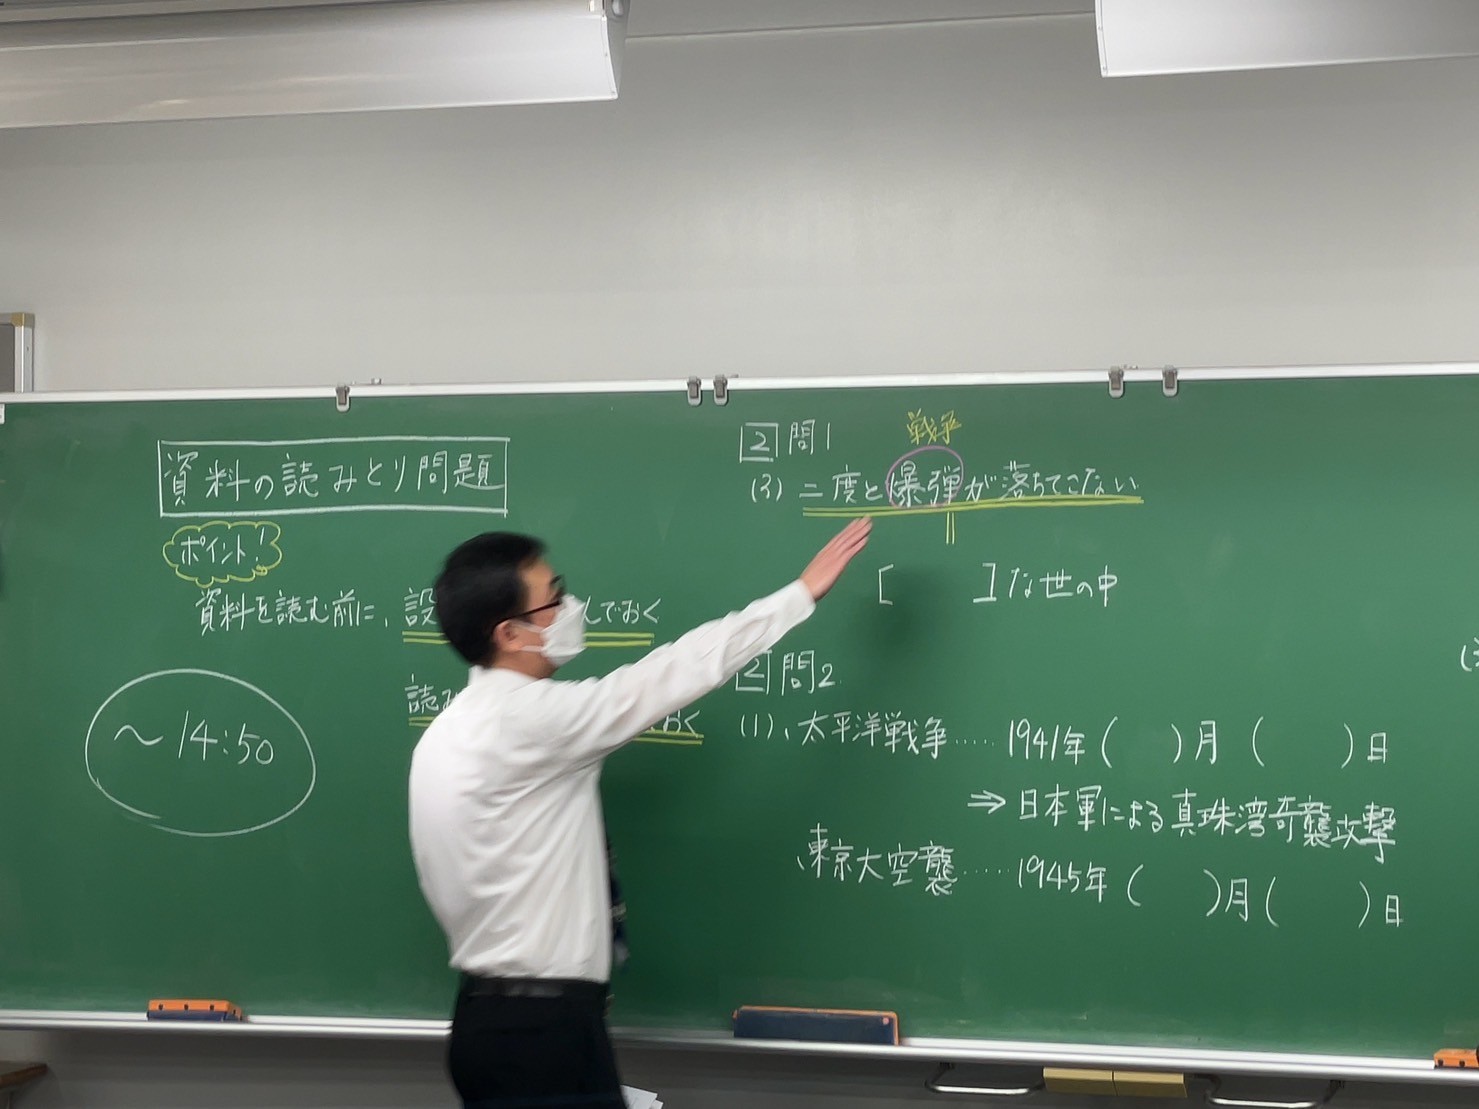 資料の読みとり問題
ポイント!
資料を読む前に、設 んでおく
読み おく
～14:50
2 問1
戦争
(3) 二度と爆弾が落ちてこない
[ ]な世の中
2 問2
(1)、太平洋戦争……1941年( )月( )日
⇒日本軍による真珠湾奇襲攻撃
、東京大空襲……1945年( )月( )日